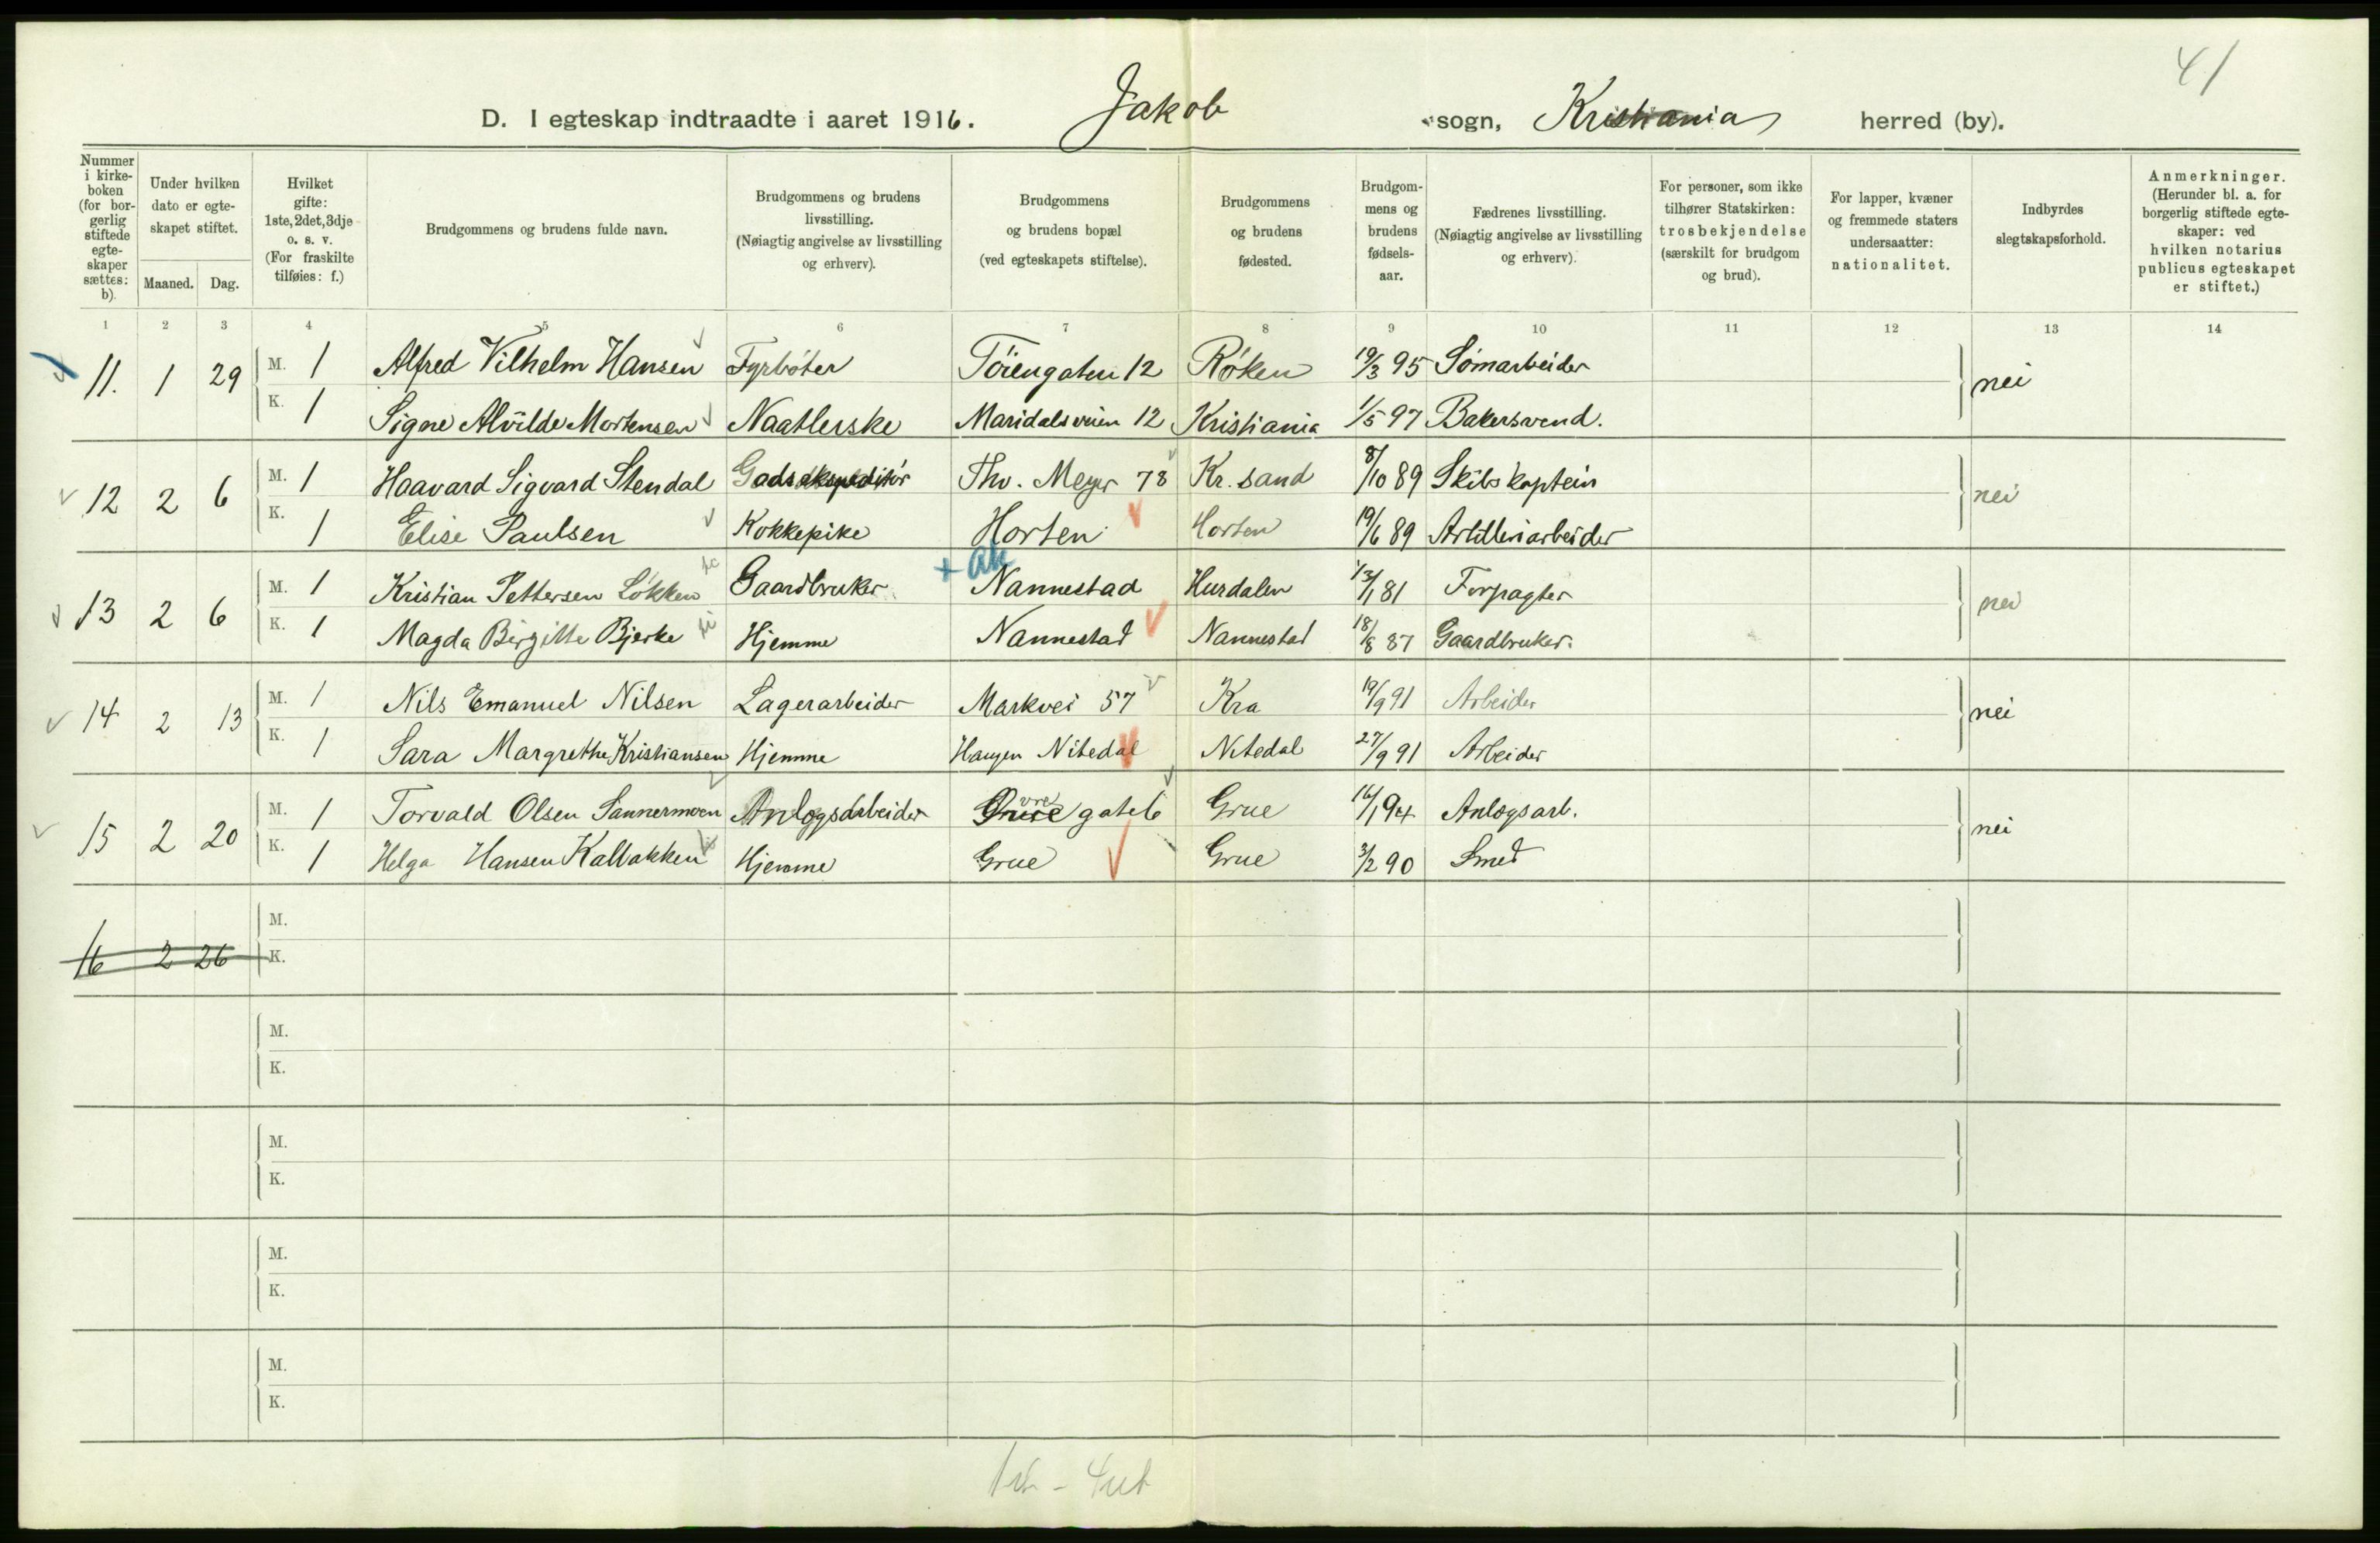 41
D. I egteskap indtraadte i aaret 1916. Jakob sogn, Kristiania herred (by).
Nummer i kirkeboken (for borgerlig stiftede egteskaper sættes: b).
Under hvilken dato er egteskapet stiftet.
Maaned. Dag.
Hvilket gifte: 1ste, 2det, 3dje o. s. v. (For fraskilte tilføies: f.)
Brudgommens og brudens fulde navn.
Brudgommens og brudens livsstilling. (Nøiagtig angivelse av livsstilling og erhverv).
Brudgommens og brudens bopæl (ved egteskapets stiftelse).
Brudgommens og brudens fødested.
Brudgommens og brudens fødselsaar.
Fædrenes livsstilling. (Nøiagtig angivelse av livsstilling og erhverv).
For personer, som ikke tilhører Statskirken: trosbekjendelse (særskilt for brudgom og brud).
For lapper, kvæner og fremmede staters undersaatter: nationalitet.
Indbyrdes slegtskapsforhold.
Anmerkninger. (Herunder bl. a. for borgerlig stiftede egteskaper: ved hvilken notarius publicus egteskapet er stiftet.)
1 2 3 4 5 6 7 8 9 10 11 12 13 14
11. 1 29 M. 1 Alfred Vilhelm Hansen Fyrbøter Töiengaten 12 Røken 19/3 95 Sömarbeider nei
K. 1 Signe Alvilde Mortensen Naatlerske Maridalsveien 12 Kristiania 1/5 97 Bakersvend.
12 2 6 M. 1 Haavard Sigvard Stendal Godsekspeditör Thv. Meyer 78 Kr. sand 8/10 89 Skibskaptein nei
K. 1 Elise Paulsen Kokkepike Horten Horten 19/6 89 Artilleriarbeider
+ ak
13 2 6 M. 1 Kristian Pettersen Løkken Gaardbruker Nannestad Hurdalen 13/1 81 Forpagter nei
K. 1 Magda Birgitte Bjerke Hjemme Nannestad Nannestad 18/8 87 Gaardbruker.
14 2 13 M. 1 Nils Emanuel Nilsen Lagerarbeider Markvei 57 Kra 19/9 91 Arbeider nei
K. 1 Sara Margrethe Kristiansen Hjemme Haugen Nitedal Nitedal 27/9 91 Arbeider
15 2 20 M. 1 Torvald Olsen Sannermoen Anlogsarbeider gate 6 Grue 16/1 94 Anlogsarb. nei
K. 1 Helga Hansen Kallakken Hjemme Grue Grue 3/2 90 Smed
16 2 26 M.
K.
M.
K.
M.
K.
M.
K.
M.
K.